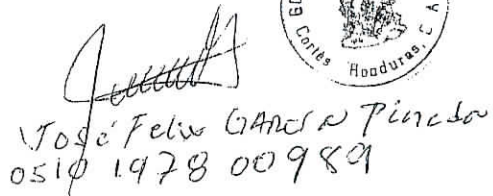 Cortés Honduras, C A
José Felix GARCIA Pineda
0510 1978 00989